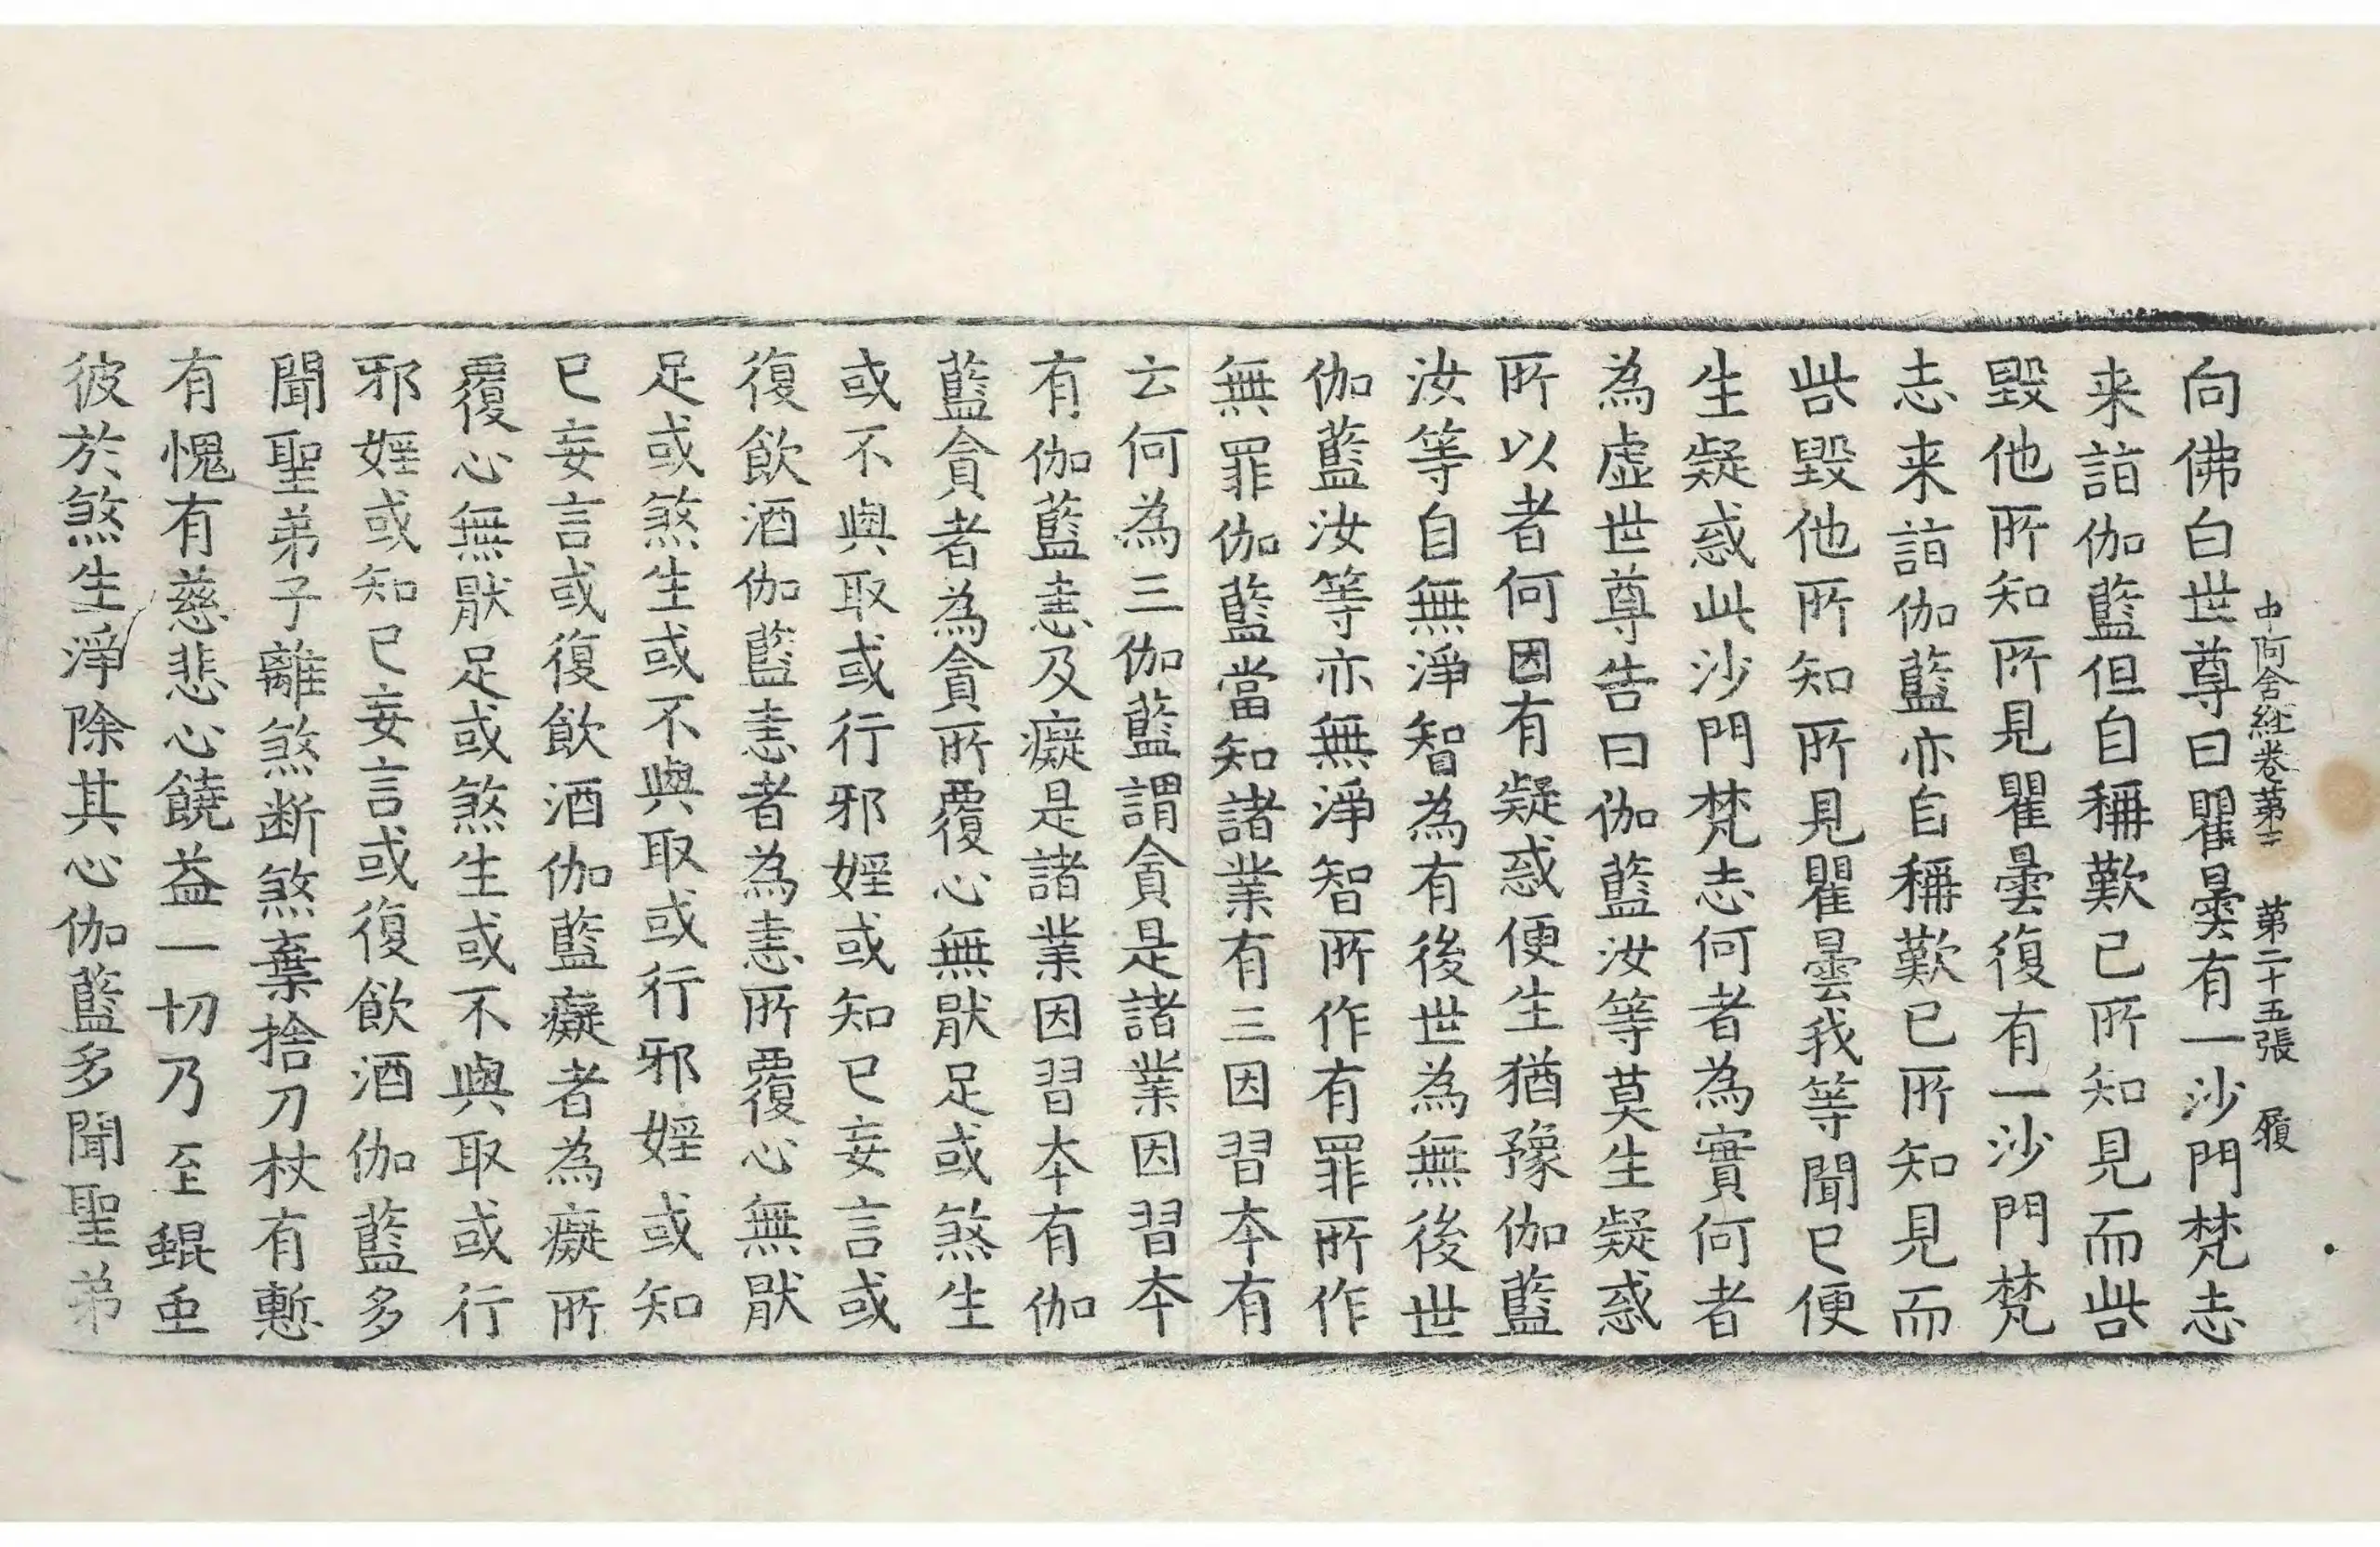 中阿含經卷第三　第二十五張　履
向佛白世尊曰瞿曇有一沙門梵志
来詣伽藍但自稱歎己所知見而呰
毀他所知所見瞿曇復有一沙門梵
志来詣伽藍亦自稱歎己所知見而
呰毀他所知所見瞿曇我等聞已便
生疑惑此沙門梵志何者為實何者
為虛世尊告曰伽藍汝等莫生疑惑
所以者何因有疑惑便生猶豫伽藍
汝等自無淨智為有後世為無後世
伽藍汝等亦無淨智所作有罪所作
無罪伽藍當知諸業有三因習本有
云何為三伽藍謂貪是諸業因習本
有伽藍恚及癡是諸業因習本有伽
藍貪者為貪所覆心無猒足或煞生
或不與取或行邪婬或知已妄言或
復飲酒伽藍恚者為恚所覆心無猒
足或煞生或不與取或行邪婬或知
已妄言或復飲酒伽藍癡者為癡所
覆心無猒足或煞生或不與取或行
邪婬或知已妄言或復飲酒伽藍多
聞聖弟子離煞断煞棄捨刀杖有慙
有愧有慈悲心饒益一切乃至蜫虫
彼於煞生淨除其心伽藍多聞聖弟